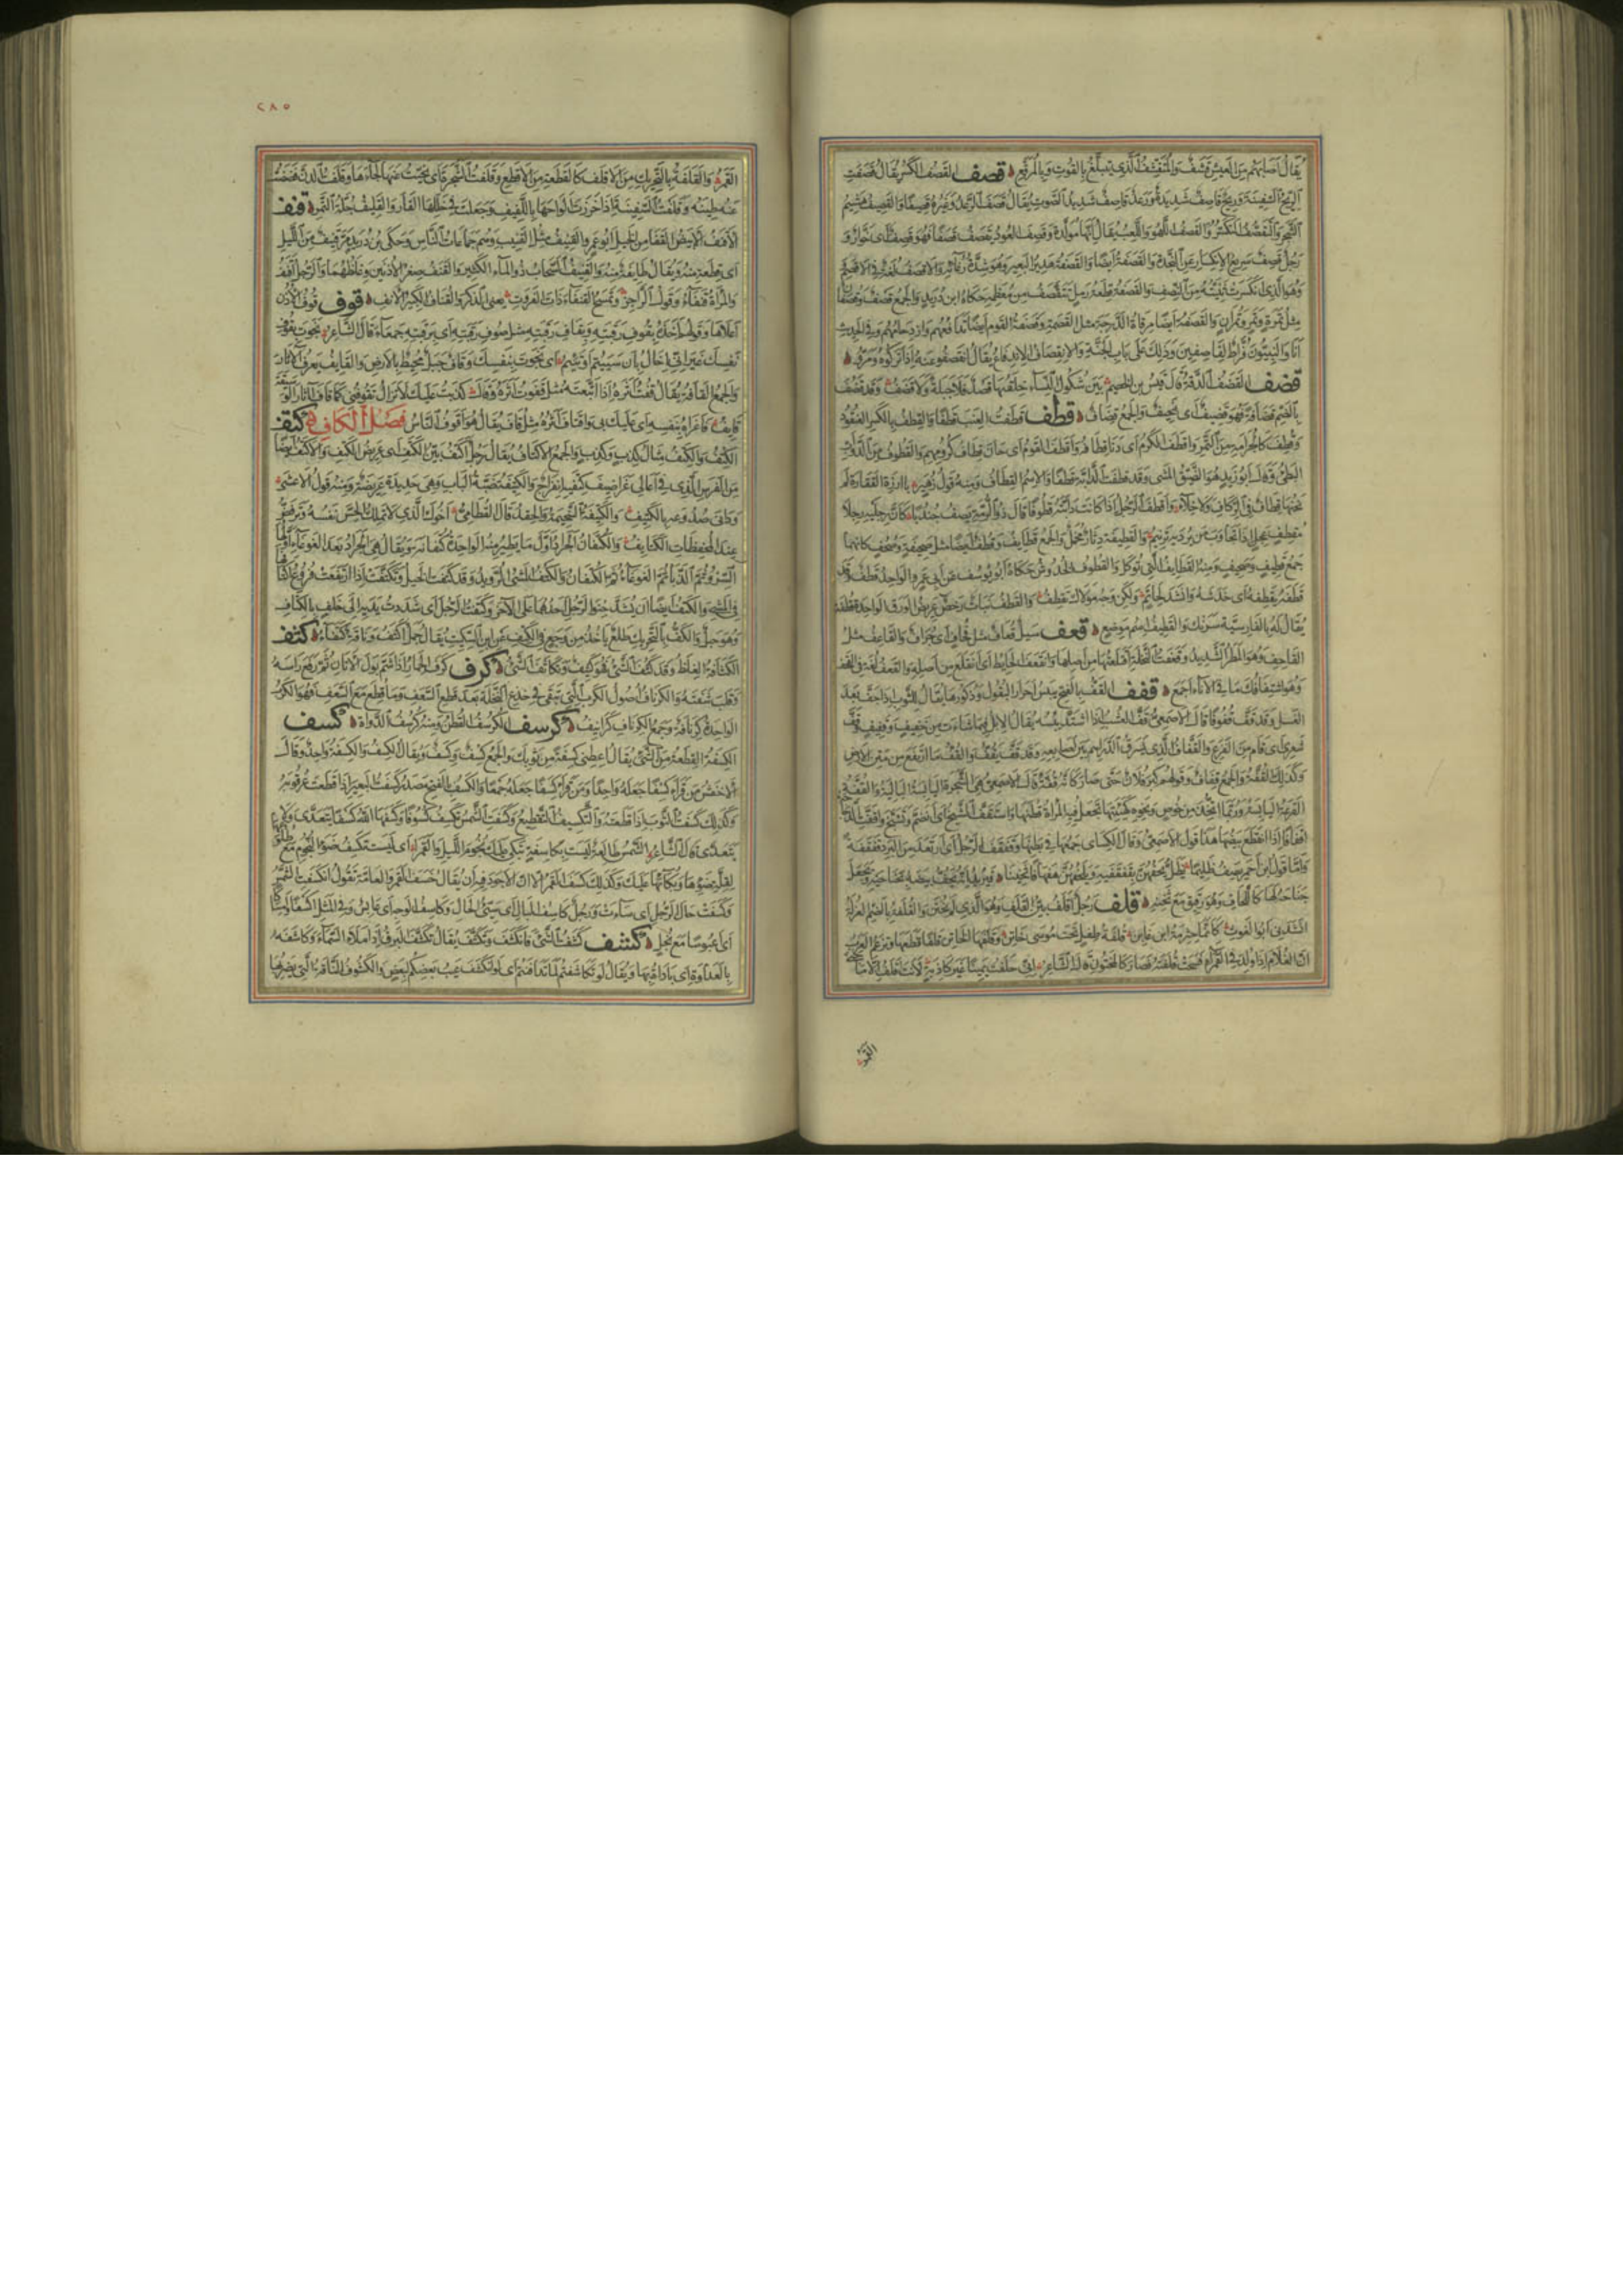 يقال أصابهم من العيش قشف والمتقشف الذي يتبلغ بالقوت وبالمرقع قصف القصف الكسر يقال قصفت
الريح السفينة وريح قاصف شديدة ورعد قاصف شديد الصوت يقال قصف الرعد وغيره قصيفا والقصيف هشيم
الشجر والتقصف التكسر والقصف اللهو واللعب يقال إنها مولدة وقصف العود يقصف قصفا فهو قصف أى خوار و
رجل قصف سريع الانكسار عن النجدة والقصفة أيضا والقصفة هدير البعير وهو شدة رغائه والاقصف لغة فى الاقصم
وهو الذى انكسرت ثنيته من النصف والقصفة قطعة رمل تتقصف من معظمه حكاه ابن دريد والجمع قصف وقصفان
مثل تمرة وتمر وتمران والقصفة أيضا مرقاة الدرجة مثل القصمة وقصفة القوم أيضا تدافعهم وازدحامهم وفى الحديث
انا والنبيون فراط لقاصفين وذلك على باب الجنة والانقصاف الاندفاع يقال انقصفوا عنه إذا تركوه ومروا
قضف القضف الدقة قال قيس بن الخطيم بين شكول النساء خلقتها قصد فلا جبلة ولا قضف وقد قضف
بالضم قضافة فهو قضيف أى نحيف والجمع قضاف قطف قطفت العنب قطفا والقطف بالكسر العنقود
وأقطف الكرم أى دنا قطافه وأقطف القوم أى حان قطاف كرومهم والقطوف من الدواب
البطئ وقال أبو زيد هو الضيق المشى وقد قطفت الدابة قطفا والاسم القطاف ومنه قول زهير بآرزة الفقارة لم
يخنها قطاف فى الركاب ولا خلاء وأقطف الرجل إذا كانت دابته قطوفا قال ذو الرمة يصف جندبا كأن رجليه رجلا
مقطف عجل إذا تجاوب من برديه ترنيم والقطيفة دثار مخمل والجمع قطائف وقطف أيضا مثل صحيفة وصحف كانها
جمع قطيف وصحيف ومنه القطائف التى تؤكل والقطوف الخدوش حكاه أبو يوسف عن أبى عمرو الواحد قطف وقد
قطفه يقطفه أى خدشه وانشد لحاتم ولكن وجه مولاك تقطف والقطف نبات رخص عريض الورق الواحدة قطفة
يقال له بالفارسية سرنك والقطيف اسم موضع قعف سيل قعاف مثل قحاف أى جراف والقاعف مثل
القاحف وهو المطر الشديد وقعفت النخلة اقتلعتها من أصلها وانقعف الحائط أى انقلع من أصله والقعف لغة فى القحف
وهو اشتفافك ما فى الاناء اجمع قفف القف بالفتح يبيس أحرار البقول وذكورها يقال للثوب إذا جف بعد
الغسل وقد قف قفوفا قال الاصمعى قف العشب إذا اشتد يبسه يقال الابل فيما شاءت من جفيف وقفيف قف
شعرى أى قام من الفزع والقفاف الذى يسرق الدراهم بين أصابعه وقد قف يقف والقف ما ارتفع من متن الارض
وكذلك القفة والجمع قفاف وقولهم كبر فلان حتى صار كأنه قفة قال الاصمعى هى الشجرة اليابسة البالية والقفة
القرعة اليابسة وربما اتخذ من خوص ونحوه كهيئتها تجعل فيه المرأة قطنها واستقف الشيخ أى انضم وتشنج واقفت الدجاجة
اقفافا إذا انقطع بيضها هذا قول الاصمعى وقال الكسائى جمعها فى بطنها وقفقف الرجل أى ارتعد من البرد قفقفة
وأما قول ابن أحمر يصف ظليما يظل يحفهن بقفقفيه ويلحفهن هفهافا ثخينا
جناحه لها كاللحاف وهو رقيق مع ثخنه قلف رجل أقلف بين القلف وهو الذى لم يختن والقلفة بالضم الغرلة
انشدنى أبو الغوث كأنما حثرمة ابن غابن قلفة طفل تحت موسى خاتن وقلفها الخاتن قلفا قطعها وتزعم العرب
ان الغلام إذا ولد فى القمراء فسحت قلفته فصار كالمختون قال الشاعر إنى حلفت يمينا غير كاذبة لانت أقلف إلا ما
القمر
٢٨٥
القمر والقلفة بالتحريك من الأقلف كالقطعة من الأقطع وقلفت الشجرة أى نحيت عنها لحاءها وقلفت الدن فضضت
عنه طينه وقلفت السفينة إذا خرزت ألواحها بالليف وجعلت فى خللها القار والقليف جلة التمر قنف
الأقنف الأبيض القفا من الخيل أبو عمرو القنيف مثل القنيب وهم جماعات الناس وحكى ابن دريد مر قنيف من الليل
أى قطعة منه ويقال طائفة منه والقنيف السحاب ذو الماء الكثير والقنف صغر الاذنين وغلظهما والرجل أقنف
والمرأة قنفاء وقول الراجز وتمسح القنفاء ذات الفروة يعنى الذكر والقناف الكبير الأنف قوف قوف الأذن
أعلاها وقولهم أخذه بقوف رقبته وبقاف رقبته مثل صوف رقبته أى برقبته جمعاء قال الشاعر نجوت بقوف
نفسك غير أنى إخال بأن سييتم أو تئيم أى نجوت بنفسك وقاف جبل محيط بالارض والقائف يعرف الآثار
والجمع القافة يقال قفت أثره إذا اتبعته مثل قفوت أثره وقال كذبت عليك لا تزال تقوفنى كما قاف آثار الوسيقة
قائف فأغراه بنفسه أى عليك بى واقتاف أثره مثل قاف يقال هو أقوف الناس فصل الكاف كتف
الكتف والكتف مثال كذب وكذب والجمع الاكتاف يقال رجل أكتف بين الكتف أى عريض الكتف والاكتف أيضا
من الفرس الذى فى أعالى غراضيف كتفيه انفراج والكتيفة ضبة الباب وهى حديدة عريضة ومنه قول الاعشى
والكتيفة السخيمة والحقد قال القطامى أخوك الذى لا تملك الحس نفسه وترفض
عند المحفظات الكتائف والكتفان الجراد أول ما يطير منه الواحدة كتفانة ويقال هى الجراد بعد الغوغاء أولها
السرو ثم الدبا ثم الغوغاء ثم الكتفان والكتف المشى الرويد وقد كتفت الخيل وتكتفت إذا ارتفعت فروع أكتافها
فى المشى والكتف أيضا ان يشد حنوا الرحل أحدهما على الآخر وكتفت الرجل أى شددت يديه إلى خلف بالكتاف
وهو حبل والكتف بالتحريك ظلع يأخذ من وجع فى الكتف عن ابن السكيت يقال جمل أكتف وناقة كتفاء كثف
الكثافة الغلظ وقد كثف الشئ فهو كثيف وتكاثف الشئ كرف كرف الحمار إذا شم بول الأتان ثم رفع رأسه
وقلب شفته والكرناف أصول الكرب التى تبقى فى جذع النخلة بعد قطع السعف وما قطع مع السعف فهو الكرب
الواحدة كرنافة وجمع الكرناف كرانيف كرسف الكرسف القطن ومنه كرسف الدواة كسف
الكسفة القطعة من الشئ يقال أعطنى كسفة من ثوبك والجمع كسف وكسف ويقال الكسف والكسفة واحد وقال
الأخفش من قرأ كسفا جعله واحدا ومن قرأ كسفا جعله جمعا والكسف بالفتح مصدر كسفت البعير إذا قطعت عرقوبه
وكذلك كسفت الثوب إذا قطعته والتكسيف التقطيع وكسفت الشمس تكسف كسوفا وكسفها الله كسفا يتعدى ولا
يتعدى قال الشاعر الشمس طالعة ليست بكاسفة تبكى عليك نجوم الليل والقمرا أى ليست تكسف ضوء النجوم مع طلوعها
لقلة ضوئها وبكائها عليك وكذلك كسف القمر الا ان الاجود فيه أن يقال خسف القمر والعامة تقول انكسفت الشمس
وكسفت حال الرجل أى ساءت ورجل كاسف البال أى سيئ الحال وكاسف الوجه أى عابس وفى المثل أكسفا وإمساكا
أى عبوسا مع بخل كشف كشفت الشئ فانكشف وتكشف يقال تكشف البرق إذا ملأ السماء وكاشفه
بالعداوة أى باداه بها ويقال لو تكاشفتم لما تدافنتم أى لو انكشف عيب بعضكم لبعض والكشوف الناقة التى يضربها